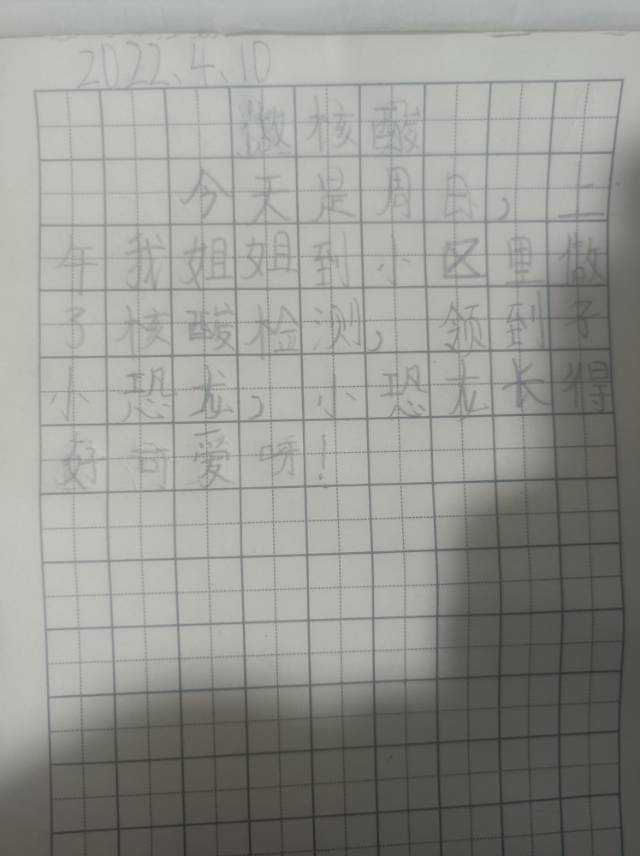 2022.4.10
做核酸
今天是周日,上
午我姐姐到小区里做
了核酸检测,领到了
小恐龙,小恐龙长得
好可爱呀!